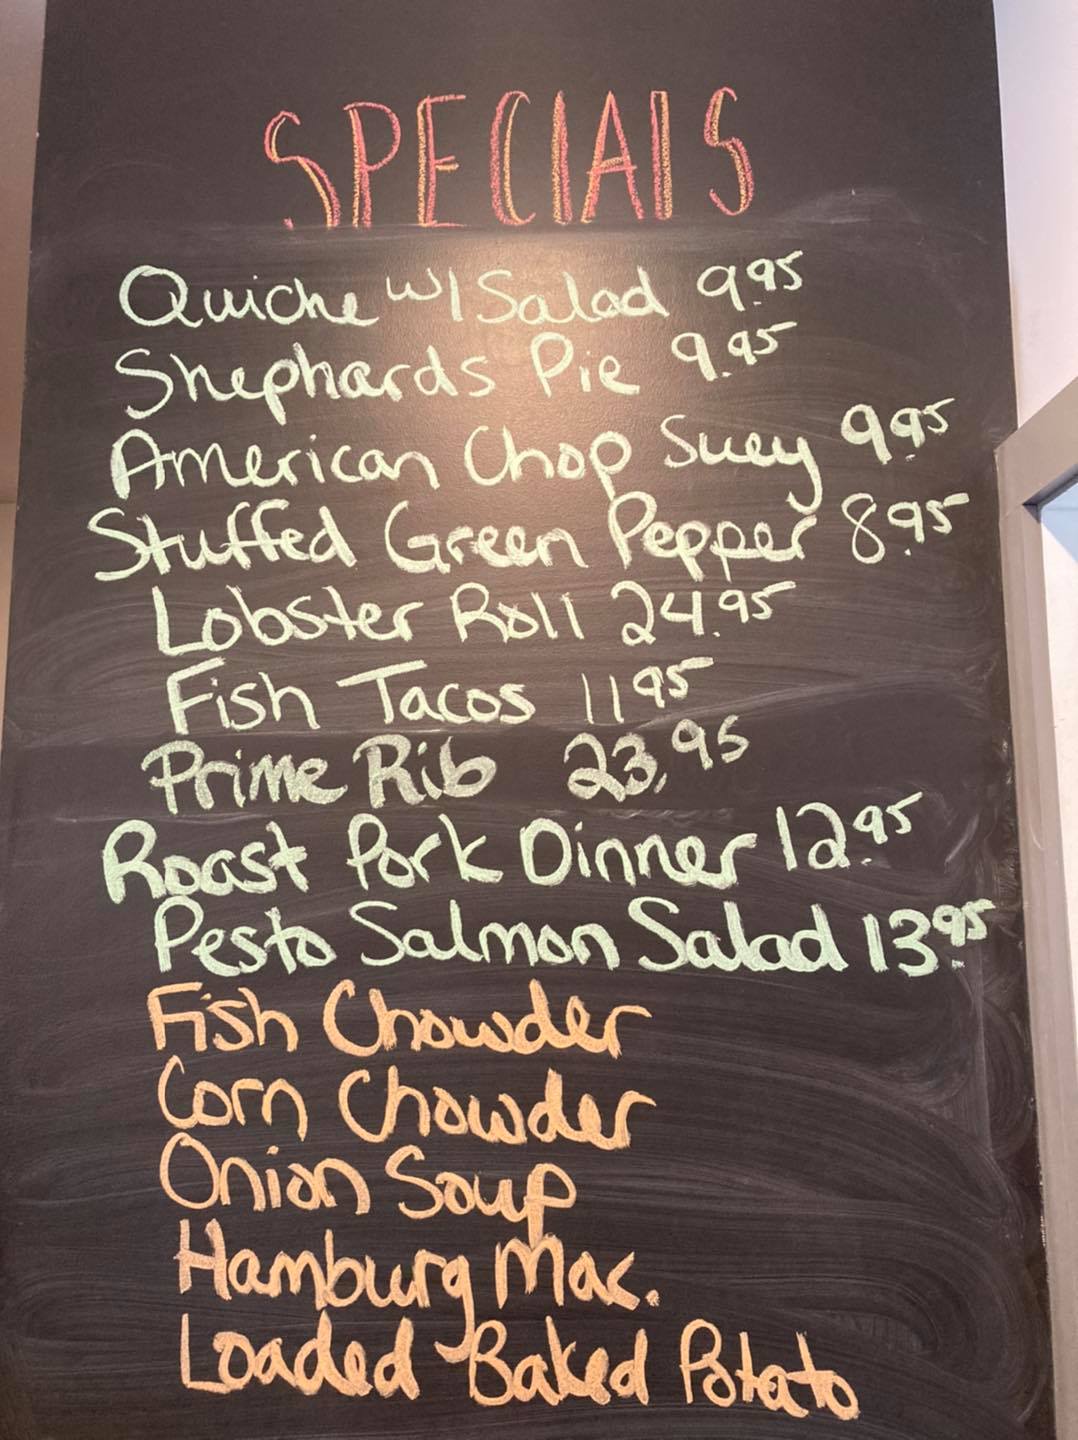 SPECIALS
Quiche w/ Salad 9.95
Shephards Pie 9.95
American Chop Suey 9.95
Stuffed Green Pepper 8.95
Lobster Roll 24.95
Fish Tacos 11 95
Prime Rib 23.95
Roast Pork Dinner 12.95
Pesto Salmon Salad 13.95
Fish Chowder
Corn Chowder
Onion Soup
Hamburg Mac.
Loaded Baked Potato